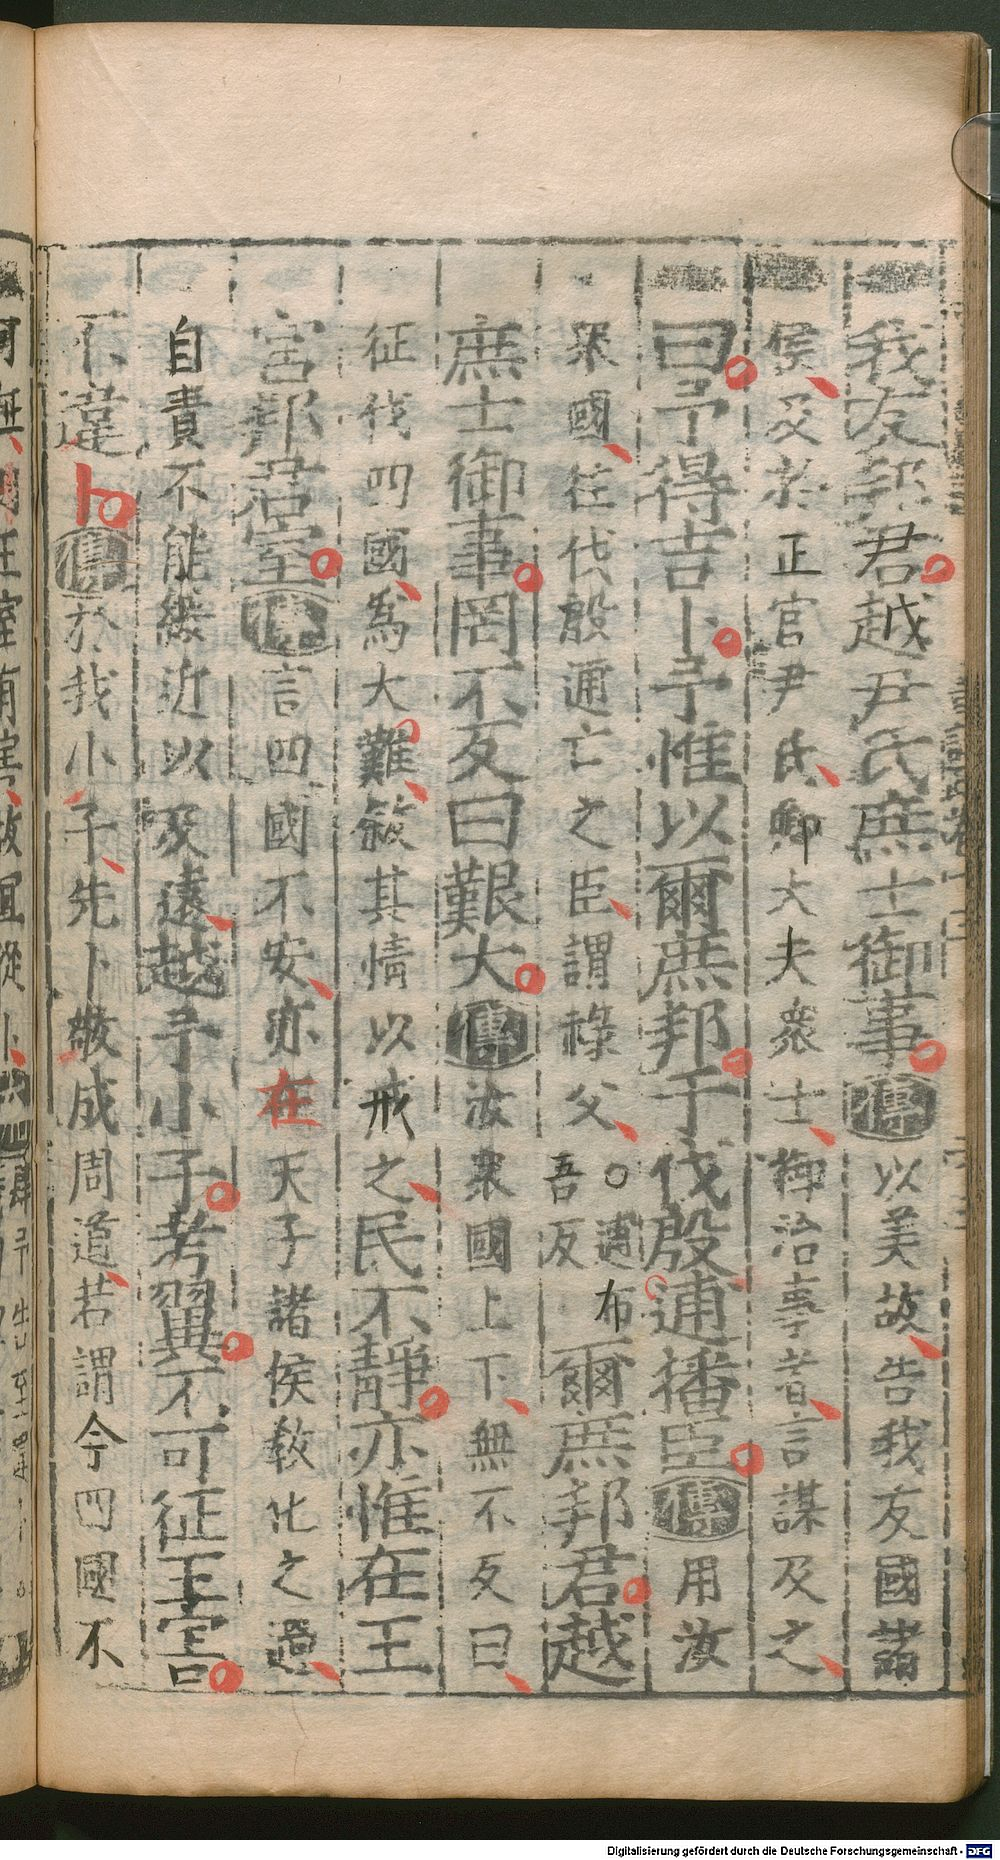 我友邦君越尹氏庶士御事傳以美故告我友國諸
侯及於正官尹氏卿大夫衆士御治事者言謀及之
曰予得吉卜予惟以爾庶邦于伐殷逋播臣傳用汝
衆國往伐殷逋亡之臣謂祿父○逋布吾反爾庶邦君越
庶士御事罔不反曰艱大傳汝衆國上下無不反曰
征伐四國為大難敘其情以戒之民不靜亦惟在王
宮邦君室傳言四國不安亦在天子諸侯教化之過
自責不能綏近以及遠越予小子考翼不可征王害
不違卜傳於我小子先卜敬成周道若謂今四國不
Digitalisierung gefördert durch die Deutsche Forschungsgemeinschaft - DFG